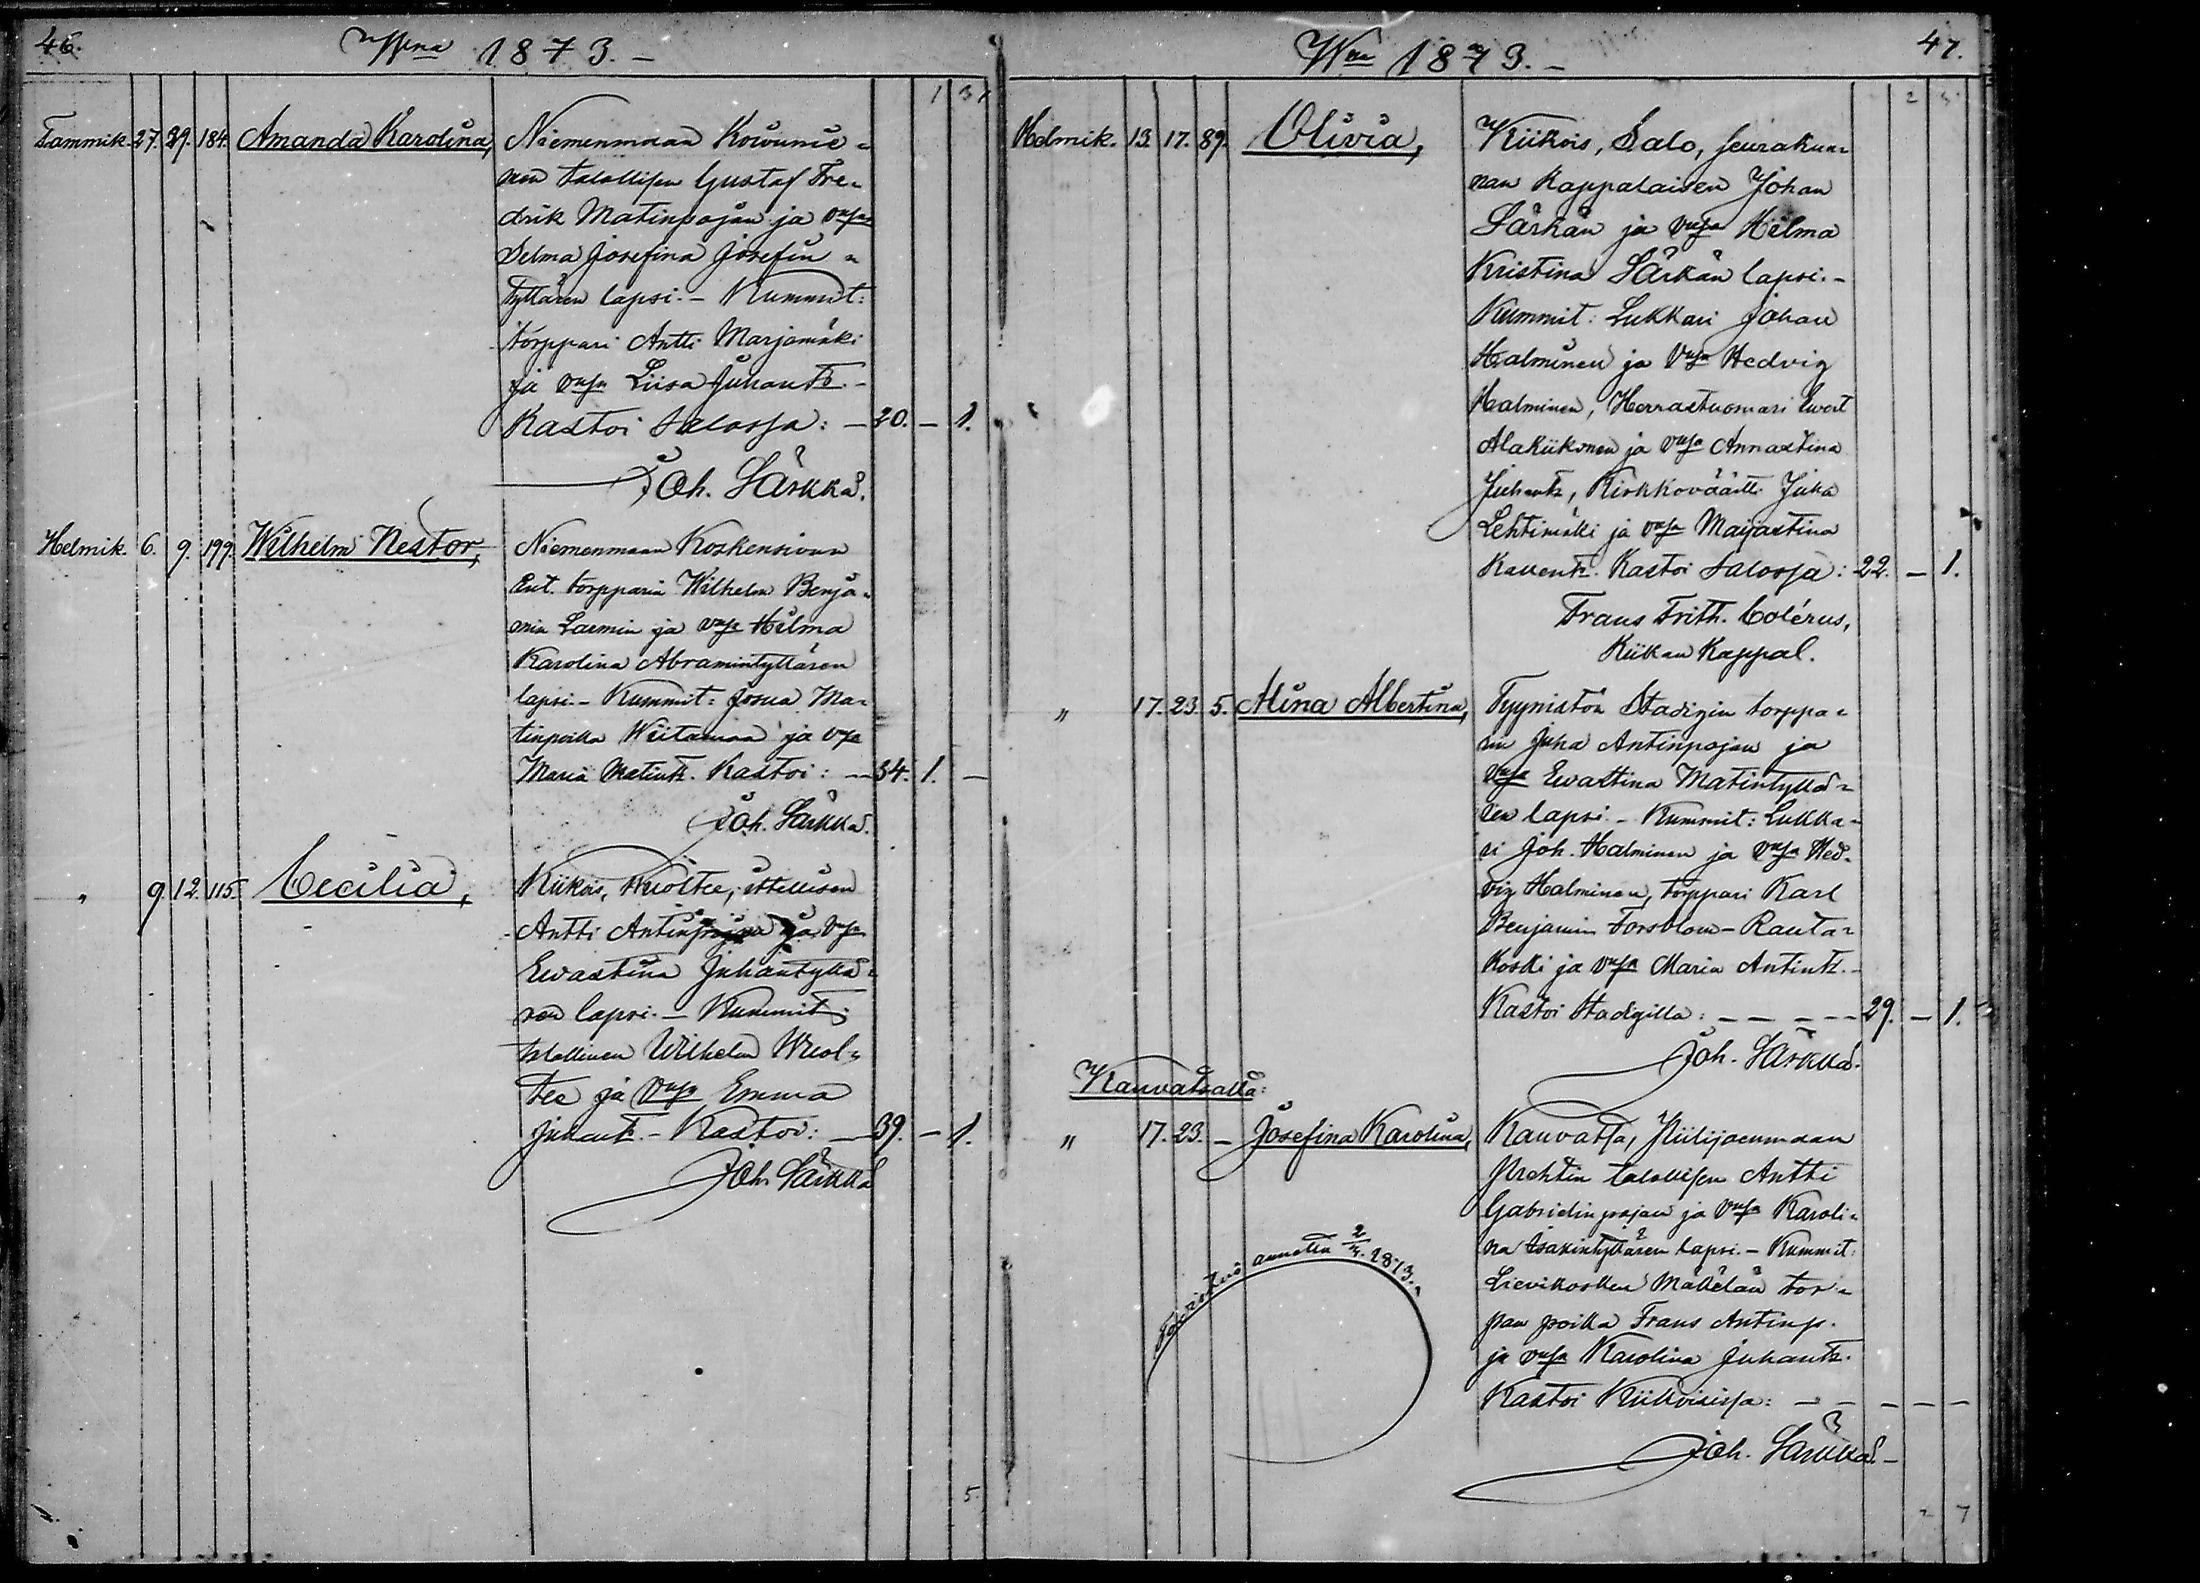 46.
Wna 1873.-
1 3
Tammik. 27. 29. 184. Amanda Karolina, Niemenmaan Kowunie-
nen talollisen Gustaf Fre-
drik Matinpojan ja vmsa
Selma Josefina Josefin-
tyttären lapsi. - Kummit:
torppari Antti Marjamäki
ja vmsa Liisa Juhantr. -
Kastoi Salossa: - 20. - 1.
Joh. Särkkä.
Helmik. 6. 9. 199. Wilhelm Nestor, Niemenmaan Koskensivun
Ent. torpparin Wilhelm Benja-
min Larmin ja vmsa Hilma
Karolina Abramintyttären
lapsi. - Kummit: Josua Ma-
tinpoika Wiitamaa ja vmsa
Maria Matintr. Kastoi: - 34. 1. -
Joh. Särkkä.
" 9. 12. 115. Cecilia, Kiikois, Wuoltee, ittellisen
Antti Antinpojan ja vmsa
Ewastina Juhantyttä-
ren lapsi. - Kummit:
talollinen Wilhelm Wuol-
tee ja vmsa Emma
Juhantr. - Kastoi: - 39. - 1.
Joh. Särkkä
5.
Wna 1873.-
47.
2
Helmik. 13. 17. 89. Olivia, Kiikois, Salo, seurakun-
nan Kappalaisen Johan
Särkän ja vmsa Hilma
Kristina Särkän lapsi. -
Kummit: Lukkari Johan
Halminen ja vmsa Hedvig
Halminen, Herrastuomari Ewert
Alakiikonen ja vmsa Annastina
Juhantr, Kirkkoväärti Juha
Lehtimäki ja vmsa Maijastina
Kallentr. Kastoi Salossa: 22. - 1.
Frans Frith. Colérus,
Kiikan Kappal.
" 17. 23. 5. Alina Albertina, Tyynistön Stadigin torppa-
rin Juha Antinpojan ja
vmsa Ewastina Matintyttä-
ren lapsi. - Kummit: Lukka-
ri Joh. Halminen ja vmsa Hed-
vig Halminen, torppari Karl
Benjamin Forsblom - Rauta-
koski ja vmsa Maria Antintr. -
Kastoi Stadigilla: - - - - 29. - 1.
Joh. Särkkä.
Kauvatsalla:
" 17. 23. - Josefina Karolina, Kauvatsa, Kiilijaenmaan
talollisen Antti
Gabrielinpojan ja vmsa Karoli-
na Isakintyttären lapsi. - Kummit:
Lievikosken Mäkelän tor-
pan poika Frans Antinp.
ja vmsa Karolina Juhantr.
Kastoi Kiikoisissa: - - - - -
annettu 2/4. 1873.
Joh. Särkkä. -
2 7